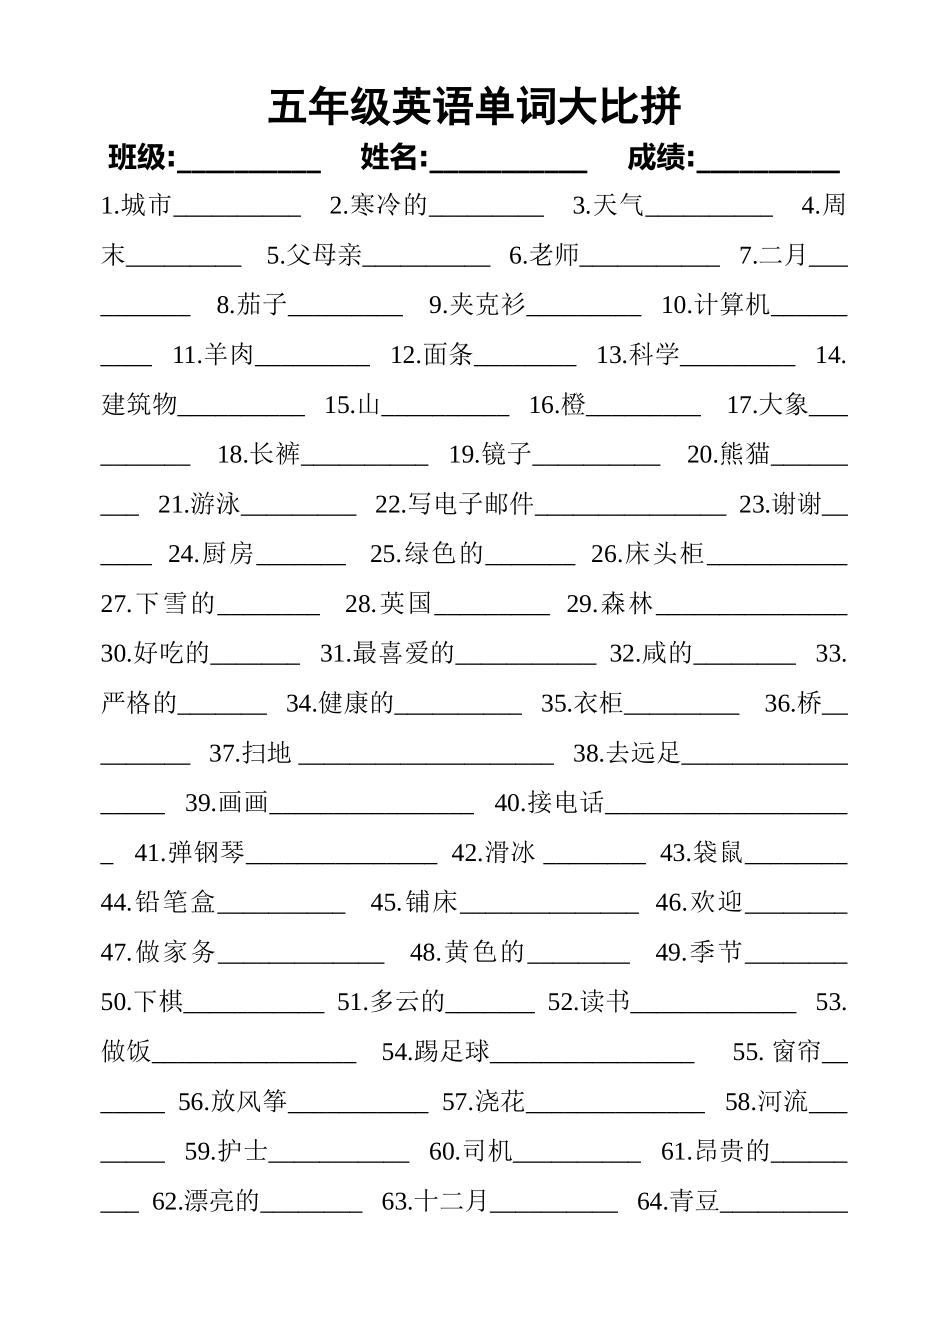 五年级英语单词大比拼
班级:__________ 姓名:___________ 成绩:__________
1.城市__________ 2.寒冷的_________ 3.天气__________ 4.周
末_________ 5.父母亲__________ 6.老师___________ 7.二月___
_______ 8.茄子_________ 9.夹克衫_________ 10.计算机______
____ 11.羊肉_________ 12.面条________ 13.科学_________ 14.
建筑物__________ 15.山__________ 16.橙_________ 17.大象___
_______ 18.长裤__________ 19.镜子__________ 20.熊猫______
___ 21.游泳_________ 22.写电子邮件_______________ 23.谢谢__
____ 24.厨房_______ 25.绿色的_______ 26.床头柜___________
27.下雪的________ 28.英国_________ 29.森林_______________
30.好吃的_______ 31.最喜爱的___________ 32.咸的________ 33.
严格的_______ 34.健康的__________ 35.衣柜_________ 36.桥__
_______ 37.扫地 ____________________ 38.去远足_____________
_____ 39.画画________________ 40.接电话___________________
_ 41.弹钢琴_______________ 42.滑冰 ________ 43.袋鼠________
44.铅笔盒__________ 45.铺床______________ 46.欢迎________
47.做家务_____________ 48.黄色的________ 49.季节________
50.下棋___________ 51.多云的_______ 52.读书_____________ 53.
做饭________________ 54.踢足球________________ 55. 窗帘__
_____ 56.放风筝___________ 57.浇花______________ 58.河流___
_____ 59.护士___________ 60.司机__________ 61.昂贵的______
___ 62.漂亮的________ 63.十二月__________ 64.青豆__________